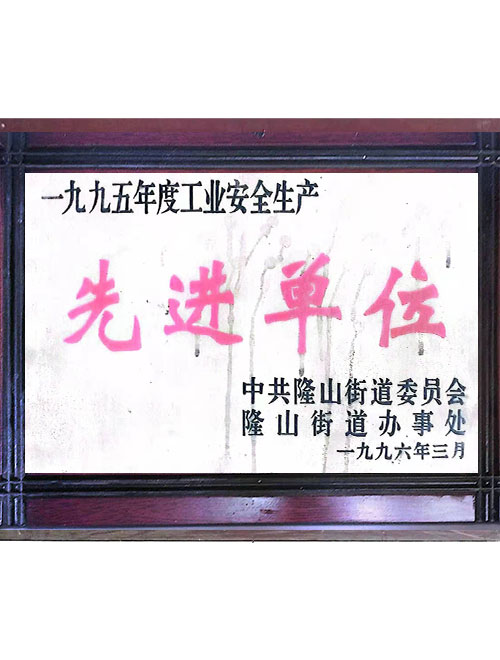 一九九五年度工业安全生产
先进单位
中共隆山街道委员会
隆山街道办事处
一九九六年三月